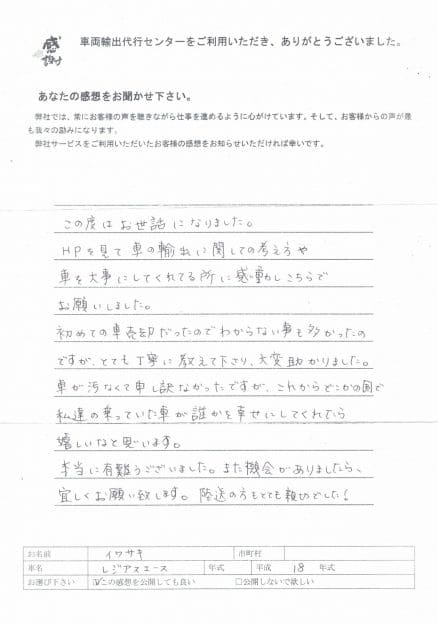 感謝
車両輸出代行センターをご利用いただき、ありがとうございました。
あなたの感想をお聞かせ下さい。
弊社では、常にお客様の声を聴きながら仕事を進めるように心がけています。そして、お客様からの声が最
も我々の励みになります。
弊社サービスをご利用いただいたお客様の感想をお知らせいただければ幸いです。
この度はお世話になりました。
HPを見て車の輸出に関しての考え方や
車を大事にしてくれてる所に感動しこちらで
お願いしました。
初めての車売却だったのでわからない事も多かったの
ですが、とても丁寧に教えて下さり、大変助かりました。
車が汚なくて申し訳なかったですが、これからどこかの国で
私達の乗っていた車が誰かを幸せにしてくれたら
嬉しいなと思います。
本当に有難うございました。また機会がありましたら、
宜しくお願い致します。陸送の方もとても親切でした!
お名前 イワサキ 市町村
車名 レジアスエース 年式 平成 18 年式
お選び下さい ☑この感想を公開しても良い □公開しないで欲しい